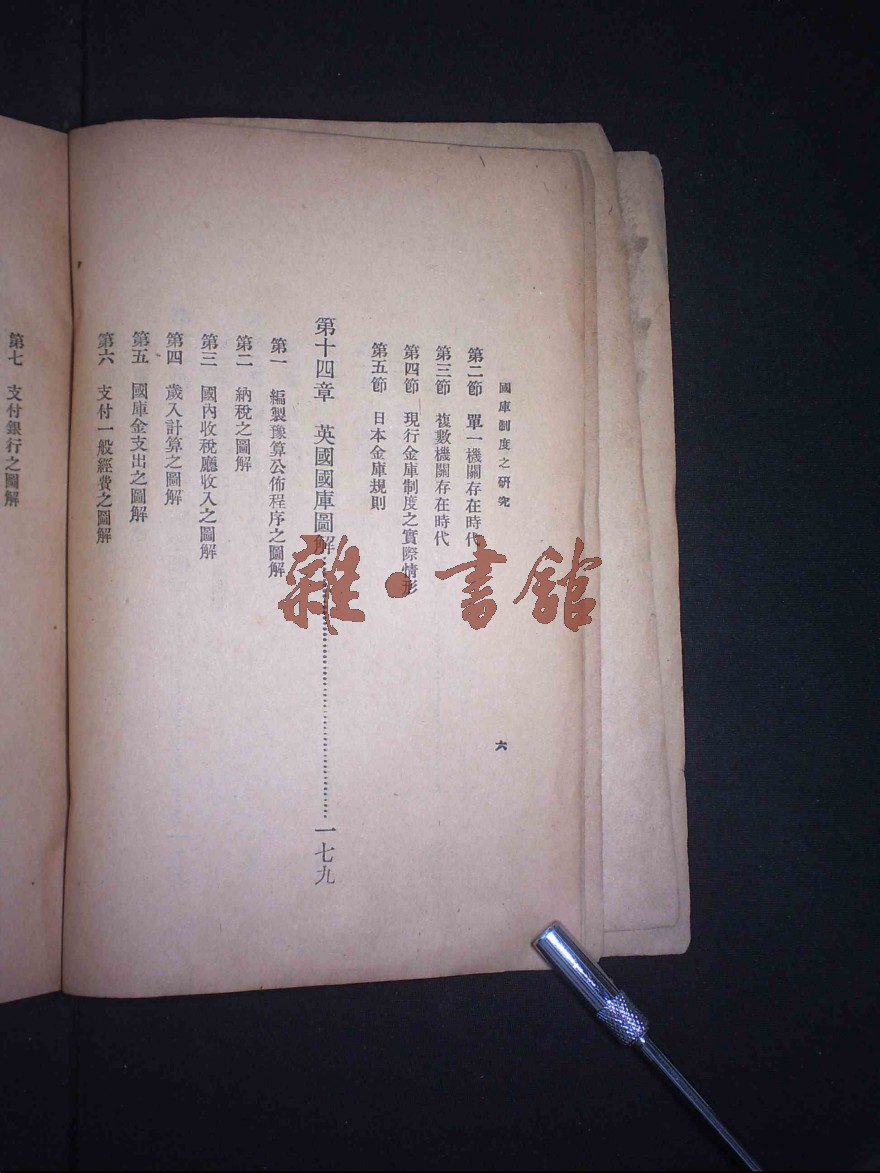 國庫制度之研究
六
第二節 單一機關存在時代
第三節 複數機關存在時代
第四節 現行金庫制度之實際情形
第五節 日本金庫規則
第十四章 英國國庫圖解……………………一七九
第一 編製豫算公佈程序之圖解
第二 納稅之圖解
第三 國內收稅廳收入之圖解
第四 歲入計算之圖解
第五 國庫金支出之圖解
第六 支付一般經費之圖解
第七 支付銀行之圖解
雜·書館